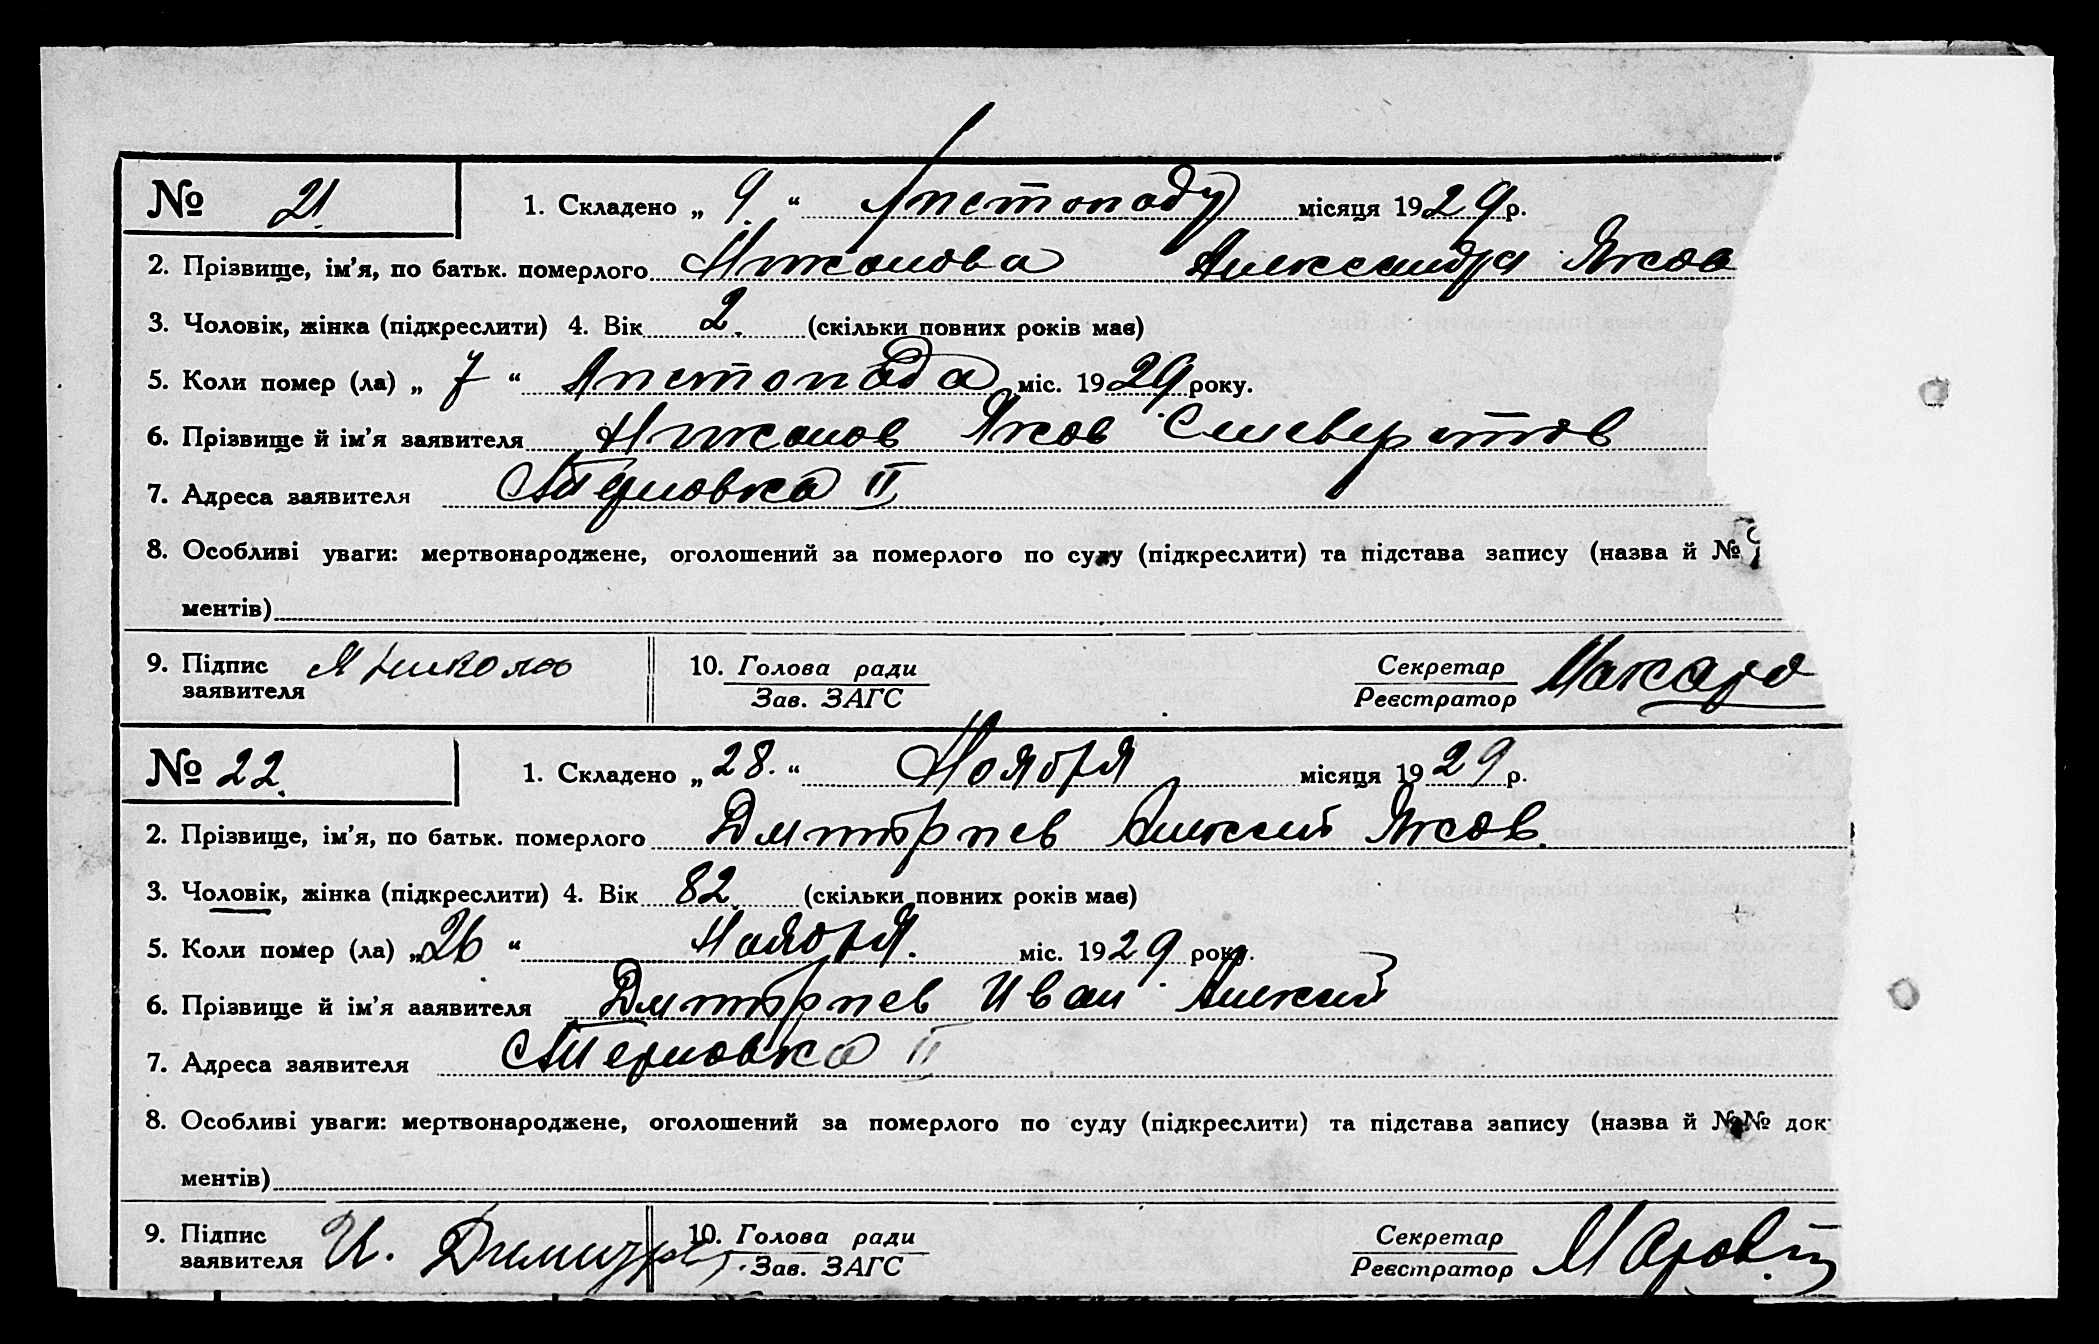 № 21. 1. Складено „ 9. “ Листопаду місяця 1929 р.
2. Прізвище, ім’я, по батьк. померлого Никонова Александра Яков
3. Чоловік, жінка (підкреслити) 4. Вік 2. (скільки повних років має)
5. Коли помер (ла) „ 7 “ Листопада міс. 1929 року.
6. Прізвище й ім’я заявителя Никонов Яков
7. Адреса заявителя Терновка II
8. Особливі уваги: мертвонароджене, оголошений за померлого по суду (підкреслити) та підстава запису (назва й №
ментів)
9. Підпис заявителя Я 10. Голова ради Секретар
Зав. ЗАГС Реєстратор
№ 22. 1. Складено „ 28. “ Ноября місяця 1929 р.
2. Прізвище, ім’я, по батьк. померлого Дмитриев Алексей Яков.
3. Чоловік, жінка (підкреслити) 4. Вік 82 (скільки повних років має)
5. Коли помер (ла) „ 26 “ Ноября. міс. 1929 року.
6. Прізвище й ім’я заявителя Дмитриев Иван Алексей
7. Адреса заявителя Терновка II
8. Особливі уваги: мертвонароджене, оголошений за померлого по суду (підкреслити) та підстава запису (назва й №№ док
ментів)
9. Підпис заявителя И. 10. Голова ради Секретар
Зав. ЗАГС Реєстратор